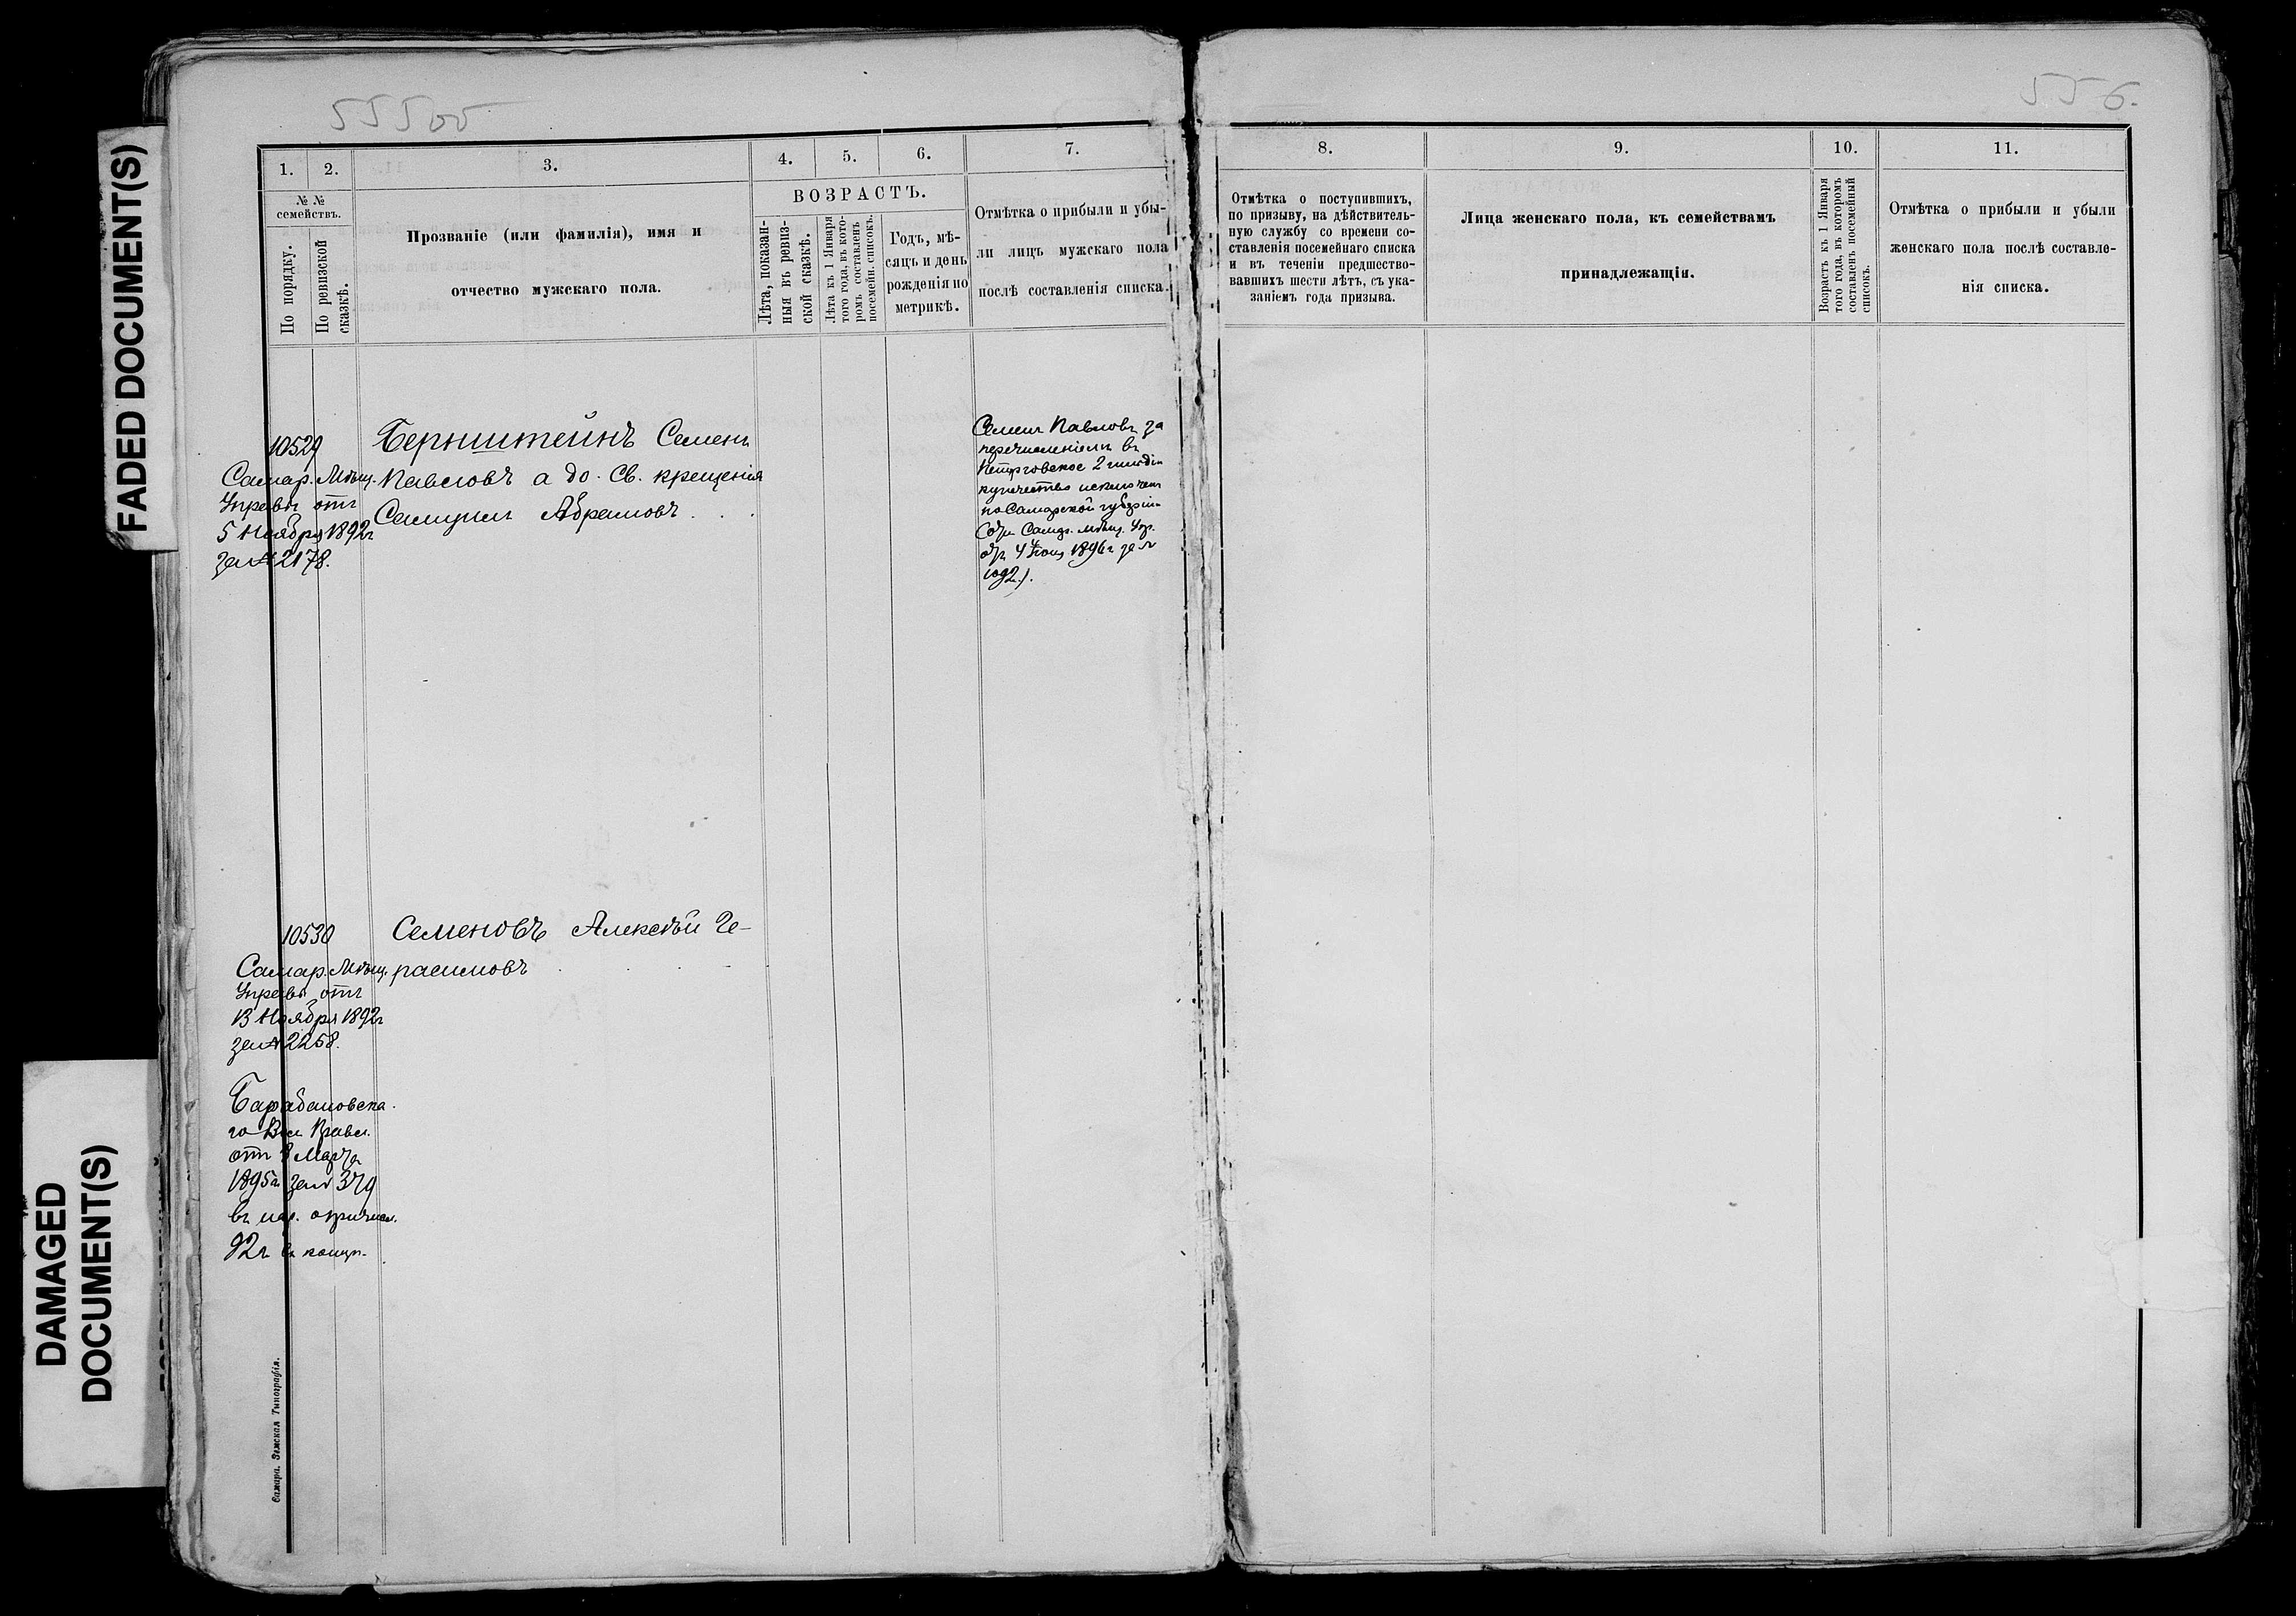 FADED DOCUMENT(S)
DAMAGED
DOCUMENT(S)
555об
556.
1.
2.
3.
4.
5.
6.
7.
№ №
семействъ.
По порядку.
По ревизской
сказкѣ.
Прозваніе (или фамилія), имя и
отчество мужскаго пола.
ВОЗРАСТЪ.
Лѣта, показан-
ныя въ ревиз-
ской сказкѣ.
Лѣта къ 1 Января
того года, въ кото-
ромъ составленъ
посемейн. списокъ.
Годъ, мѣ-
сяцъ и день
рожденія по
метрикѣ.
Отмѣтка о прибыли и убы-
ли лицъ мужскаго пола
послѣ составленія списка.
10529
Самар. Мѣщ.
Управы отъ
5 Ноября 1892г
за № 2178.
Бернштейнъ Семенъ
Павловъ а до Св. крещенія
Самуил Абрамовъ . .
Семенъ Павловъ за
перечисленіемъ въ
2 гильдіи
купечество исключен
по Самарской губерніи
Самар. Мѣщ. Упр.
1896г за №
1092).
10530
Самар. Мѣщ.
Управы отъ
13 Ноября 1892г
за № 2258.
Семеновъ Алексѣй Ге-
расимовъ
Барабановска-
го Вол Правл.
отъ 8 Марта
1895г за № 379
92г
Самара. Земская Типографія.
8.
9.
10.
11.
Отмѣтка о поступившихъ,
по призыву, на дѣйствитель-
ную службу со времени со-
ставленія посемейнаго списка
и въ теченіи предшество-
вавшихъ шести лѣтъ, съ ука-
заніемъ года призыва.
Лица женскаго пола, къ семействамъ
принадлежащія.
Возрастъ къ 1 Января
того года, въ которомъ
составленъ посемейный
списокъ.
Отмѣтка о прибыли и убыли
женскаго пола послѣ составле-
нія списка.